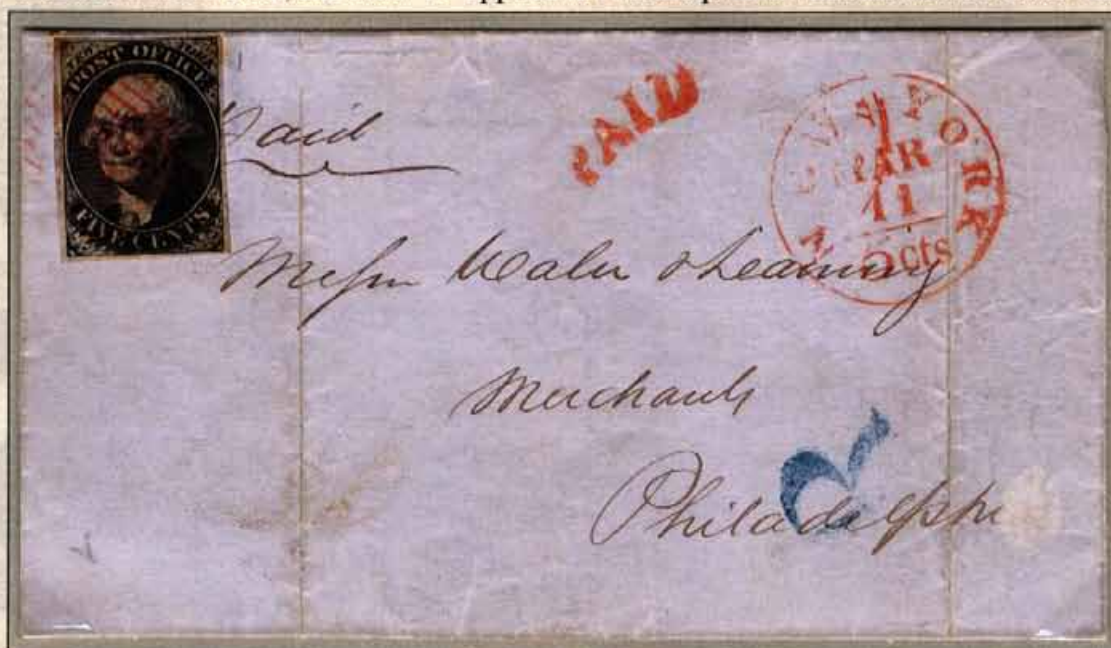 POST OFFICE
FIVE CENTS
Paid
PAID
NEW YORK
MAR
11
5cts
Messrs &
Merchants
Philadelphi
2